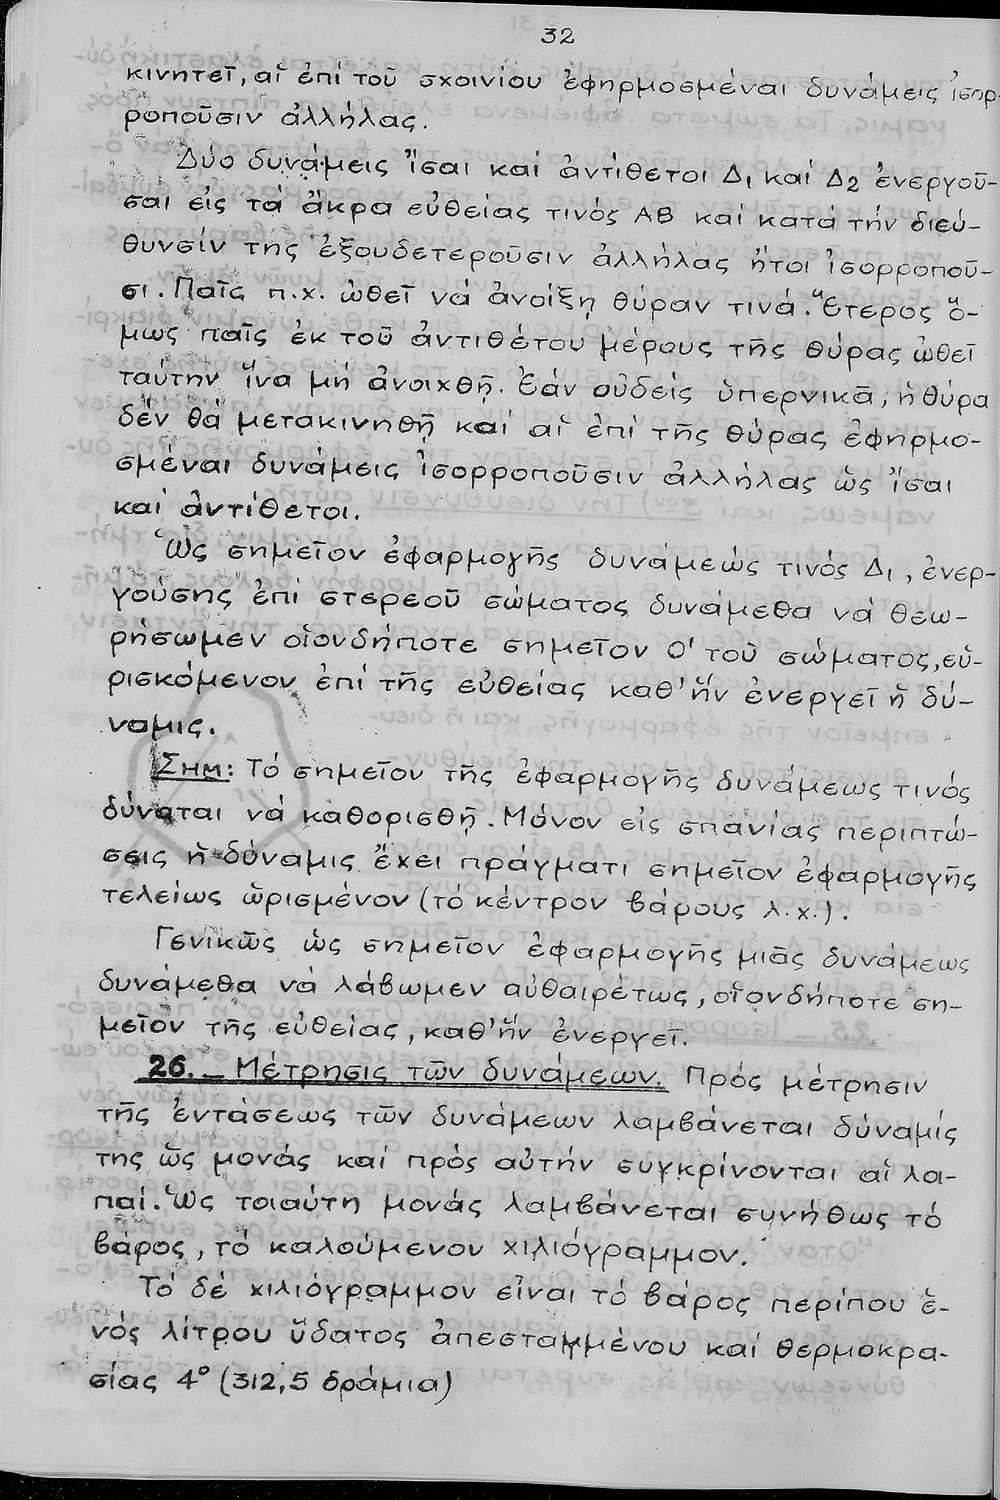 32
κινητεῖ, αἱ ἐπί τοῦ σχοινίου ἐφηρμοσμέναι δυνάμεις ἰσορ-
ροποῦσιν ἀλλήλας.
Δύο δυνάμεις ἴσαι καί ἀντίθετοι Δ1 καί Δ2 ἐνεργοῦ-
σαι εἰς τά ἄκρα εὐθείας τινός ΑΒ καί κατά τήν διεύ-
θυνσίν της ἐξουδετεροῦσιν ἀλλήλας ἤτοι ἰσορροποῦ-
σι. Παῖς π.χ. ὠθεῖ νά ἀνοίξῃ θύραν τινά. Ἕτερος ὅ-
μως παῖς ἐκ τοῦ ἀντιθέτου μέρους τῆς θύρας ὠθεῖ
ταύτην ἵνα μή ἀνοιχθῇ. Ἐάν οὐδείς ὑπερνικᾶ, ἡ θύρα
δέν θά μετακινηθῇ καί αἱ ἐπί τῆς θύρας ἐφηρμο-
σμέναι δυνάμεις ἰσορροποῦσιν ἀλλήλας ὡς ἴσαι
καί ἀντίθετοι.
Ὡς σημεῖον ἐφαρμογῆς δυνάμεώς τινός Δ1, ἐνερ-
γούσης ἐπί στερεοῦ σώματος δυνάμεθα νά θεω-
ρήσωμεν οἱονδήποτε σημεῖον Ο' τοῦ σώματος, εὑ-
ρισκόμενον ἐπί τῆς εὐθείας καθ' ἥν ἐνεργεῖ ἡ δύ-
ναμις.
Σημ: Τό σημεῖον τῆς ἐφαρμογῆς δυνάμεως τινός
δύναται νά καθορισθῇ. Μόνον εἰς σπανίας περιπτώ-
σεις ἡ δύναμις ἔχει πράγματι σημεῖον ἐφαρμογῆς
τελείως ὡρισμένον (τό κέντρον βάρους λ.χ.).
Γενικῶς ὡς σημεῖον ἐφαρμογῆς μιᾶς δυνάμεως
δυνάμεθα νά λάβωμεν αὐθαιρέτως, οἱονδήποτε ση-
μεῖον τῆς εὐθείας, καθ' ἥν ἐνεργεῖ.
26.— Μέτρησις τῶν δυνάμεων. Πρός μέτρησιν
τῆς ἐντάσεως τῶν δυνάμεων λαμβάνεται δύναμίς
της ὡς μονάς καί πρός αὐτήν συγκρίνονται αἱ λοι-
παί. Ὡς τοιαύτη μονάς λαμβάνεται συνήθως τό
βάρος, τό καλούμενον χιλιόγραμμον.
Τό δέ χιλιόγραμμον εἶναι τό βάρος περίπου ἑ-
νός λίτρου ὕδατος ἀπεσταγμένου καί θερμοκρα-
σίας 4° (312,5 δράμια)